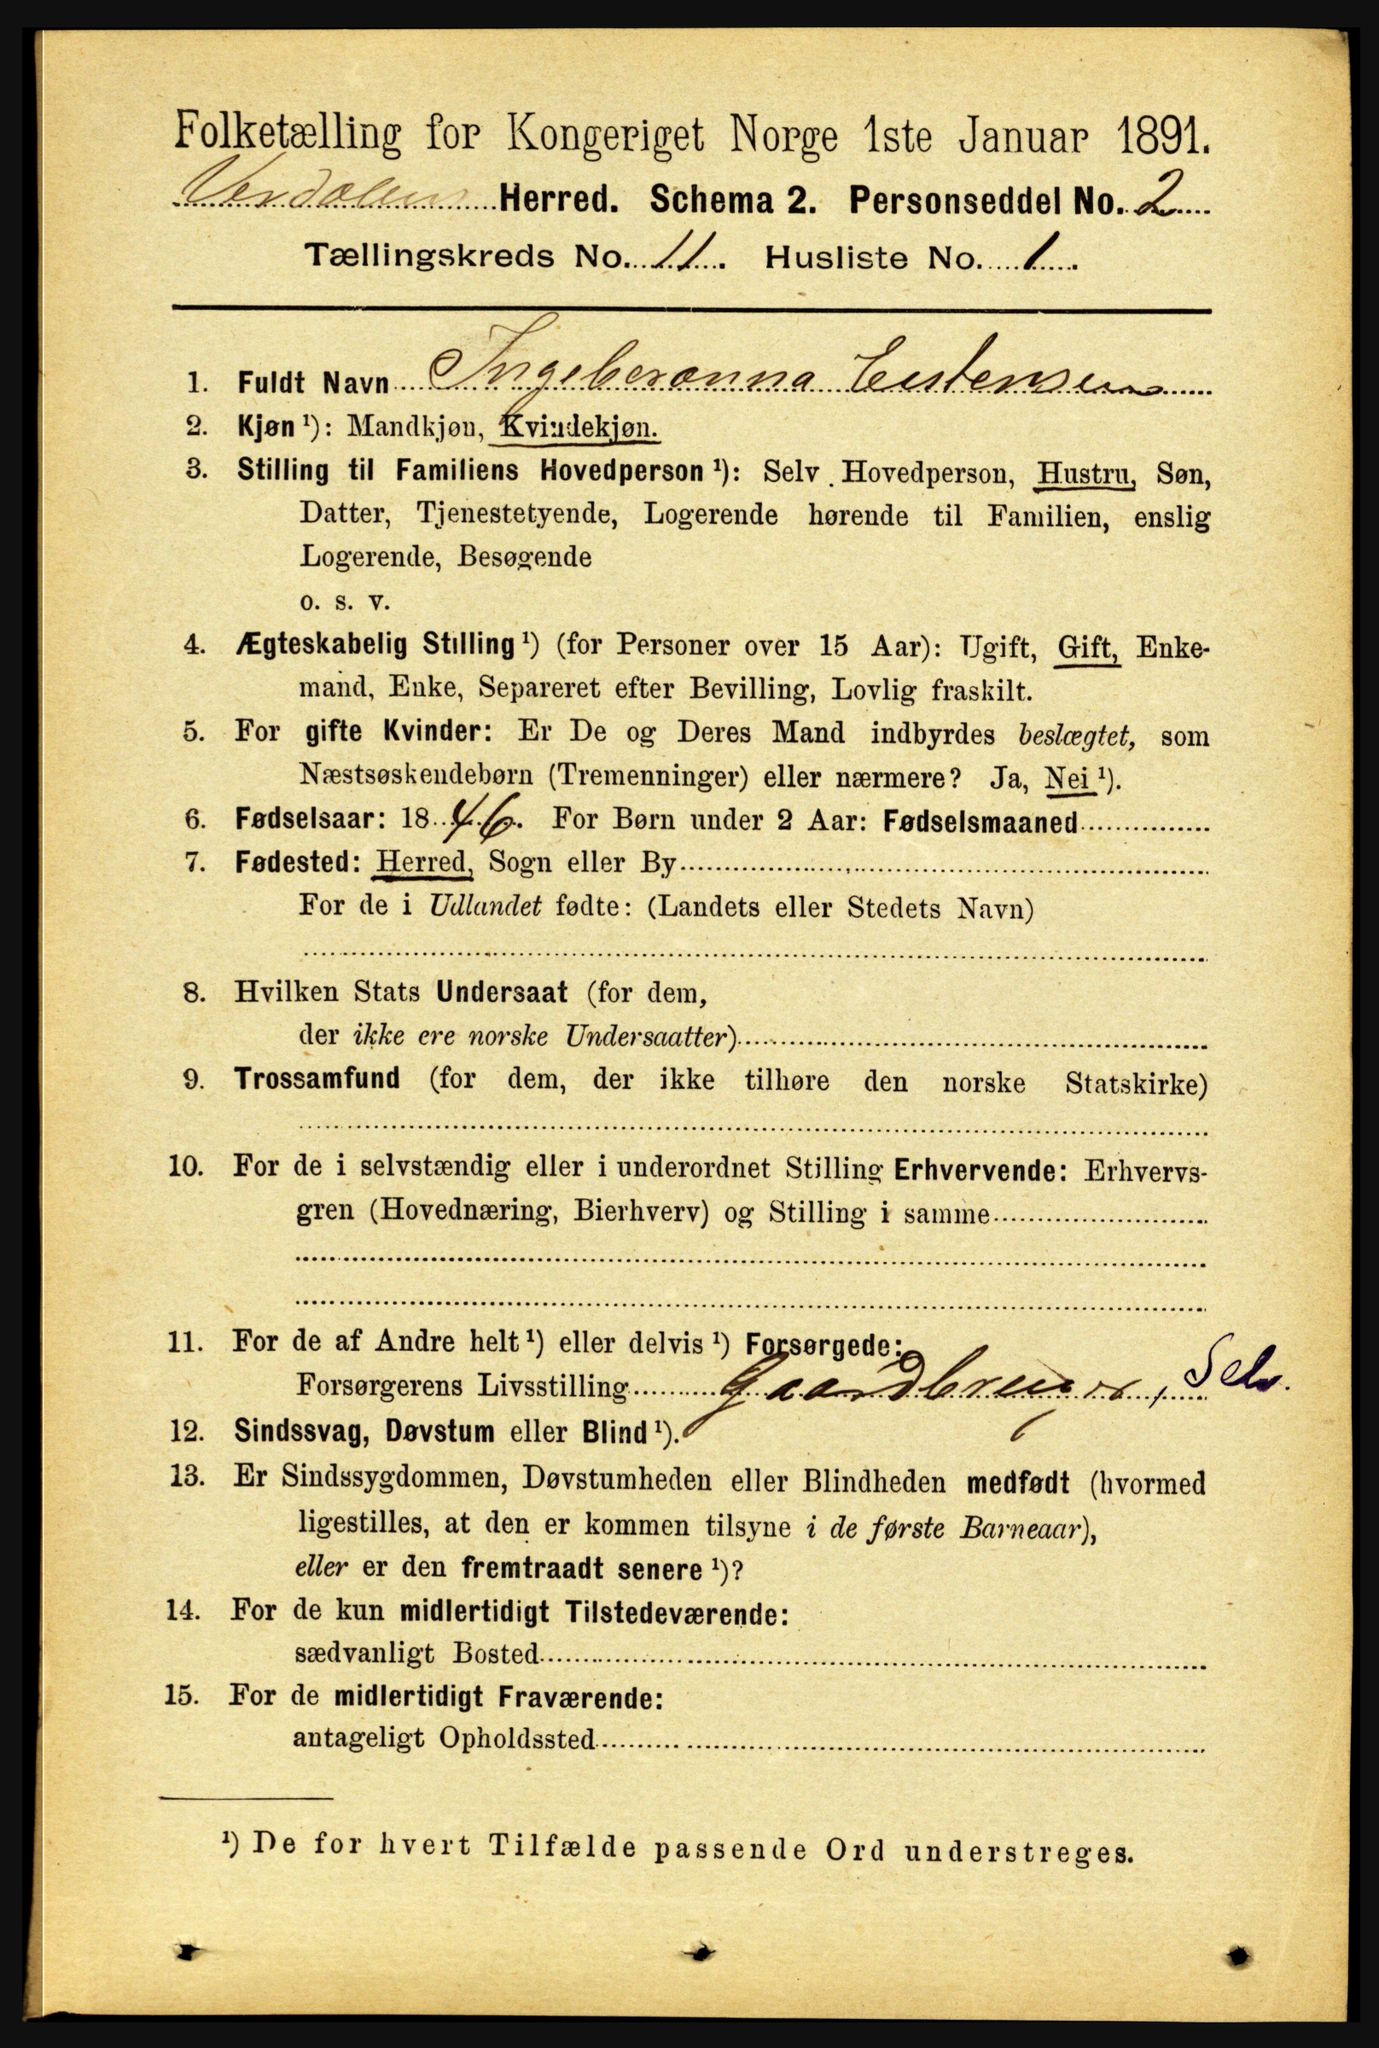 Folketælling for Kongeriget Norge 1ste Januar 1891.
Verdalens Herred. Schema 2. Personseddel No. 2
Tællingskreds No. 11. Husliste No. 1
1. Fuldt Navn Ingeberanna Eistensen
2. Kjøn ¹): Mandkjøn, Kvindekjøn.
3. Stilling til Familiens Hovedperson ¹): Selv Hovedperson, Hustru, Søn,
Datter, Tjenestetyende, Logerende hørende til Familien, enslig
Logerende, Besøgende
o. s. v.
4. Ægteskabelig Stilling ¹) (for Personer over 15 Aar): Ugift, Gift, Enke-
mand, Enke, Separeret efter Bevilling, Lovlig fraskilt.
5. For gifte Kvinder: Er De og Deres Mand indbyrdes beslægtet, som
Næstsøskendebørn (Tremenninger) eller nærmere? Ja, Nei ¹).
6. Fødselsaar: 1846. For Børn under 2 Aar: Fødselsmaaned
7. Fødested: Herred, Sogn eller By
For de i Udlandet fødte: (Landets eller Stedets Navn)
8. Hvilken Stats Undersaat (for dem,
der ikke ere norske Undersaatter)
9. Trossamfund (for dem, der ikke tilhøre den norske Statskirke)
10. For de i selvstændig eller i underordnet Stilling Erhvervende: Erhvervs-
gren (Hovednæring, Bierhverv) og Stilling i samme
11. For de af Andre helt ¹) eller delvis ¹) Forsørgede:
Forsørgerens Livsstilling Gaardbruger, Selv.
12. Sindssvag, Døvstum eller Blind ¹).
13. Er Sindssygdommen, Døvstumheden eller Blindheden medfødt (hvormed
ligestilles, at den er kommen tilsyne i de første Barneaar),
eller er den fremtraadt senere ¹)?
14. For de kun midlertidigt Tilstedeværende:
sædvanligt Bosted
15. For de midlertidigt Fraværende:
antageligt Opholdssted
¹) De for hvert Tilfælde passende Ord understreges.